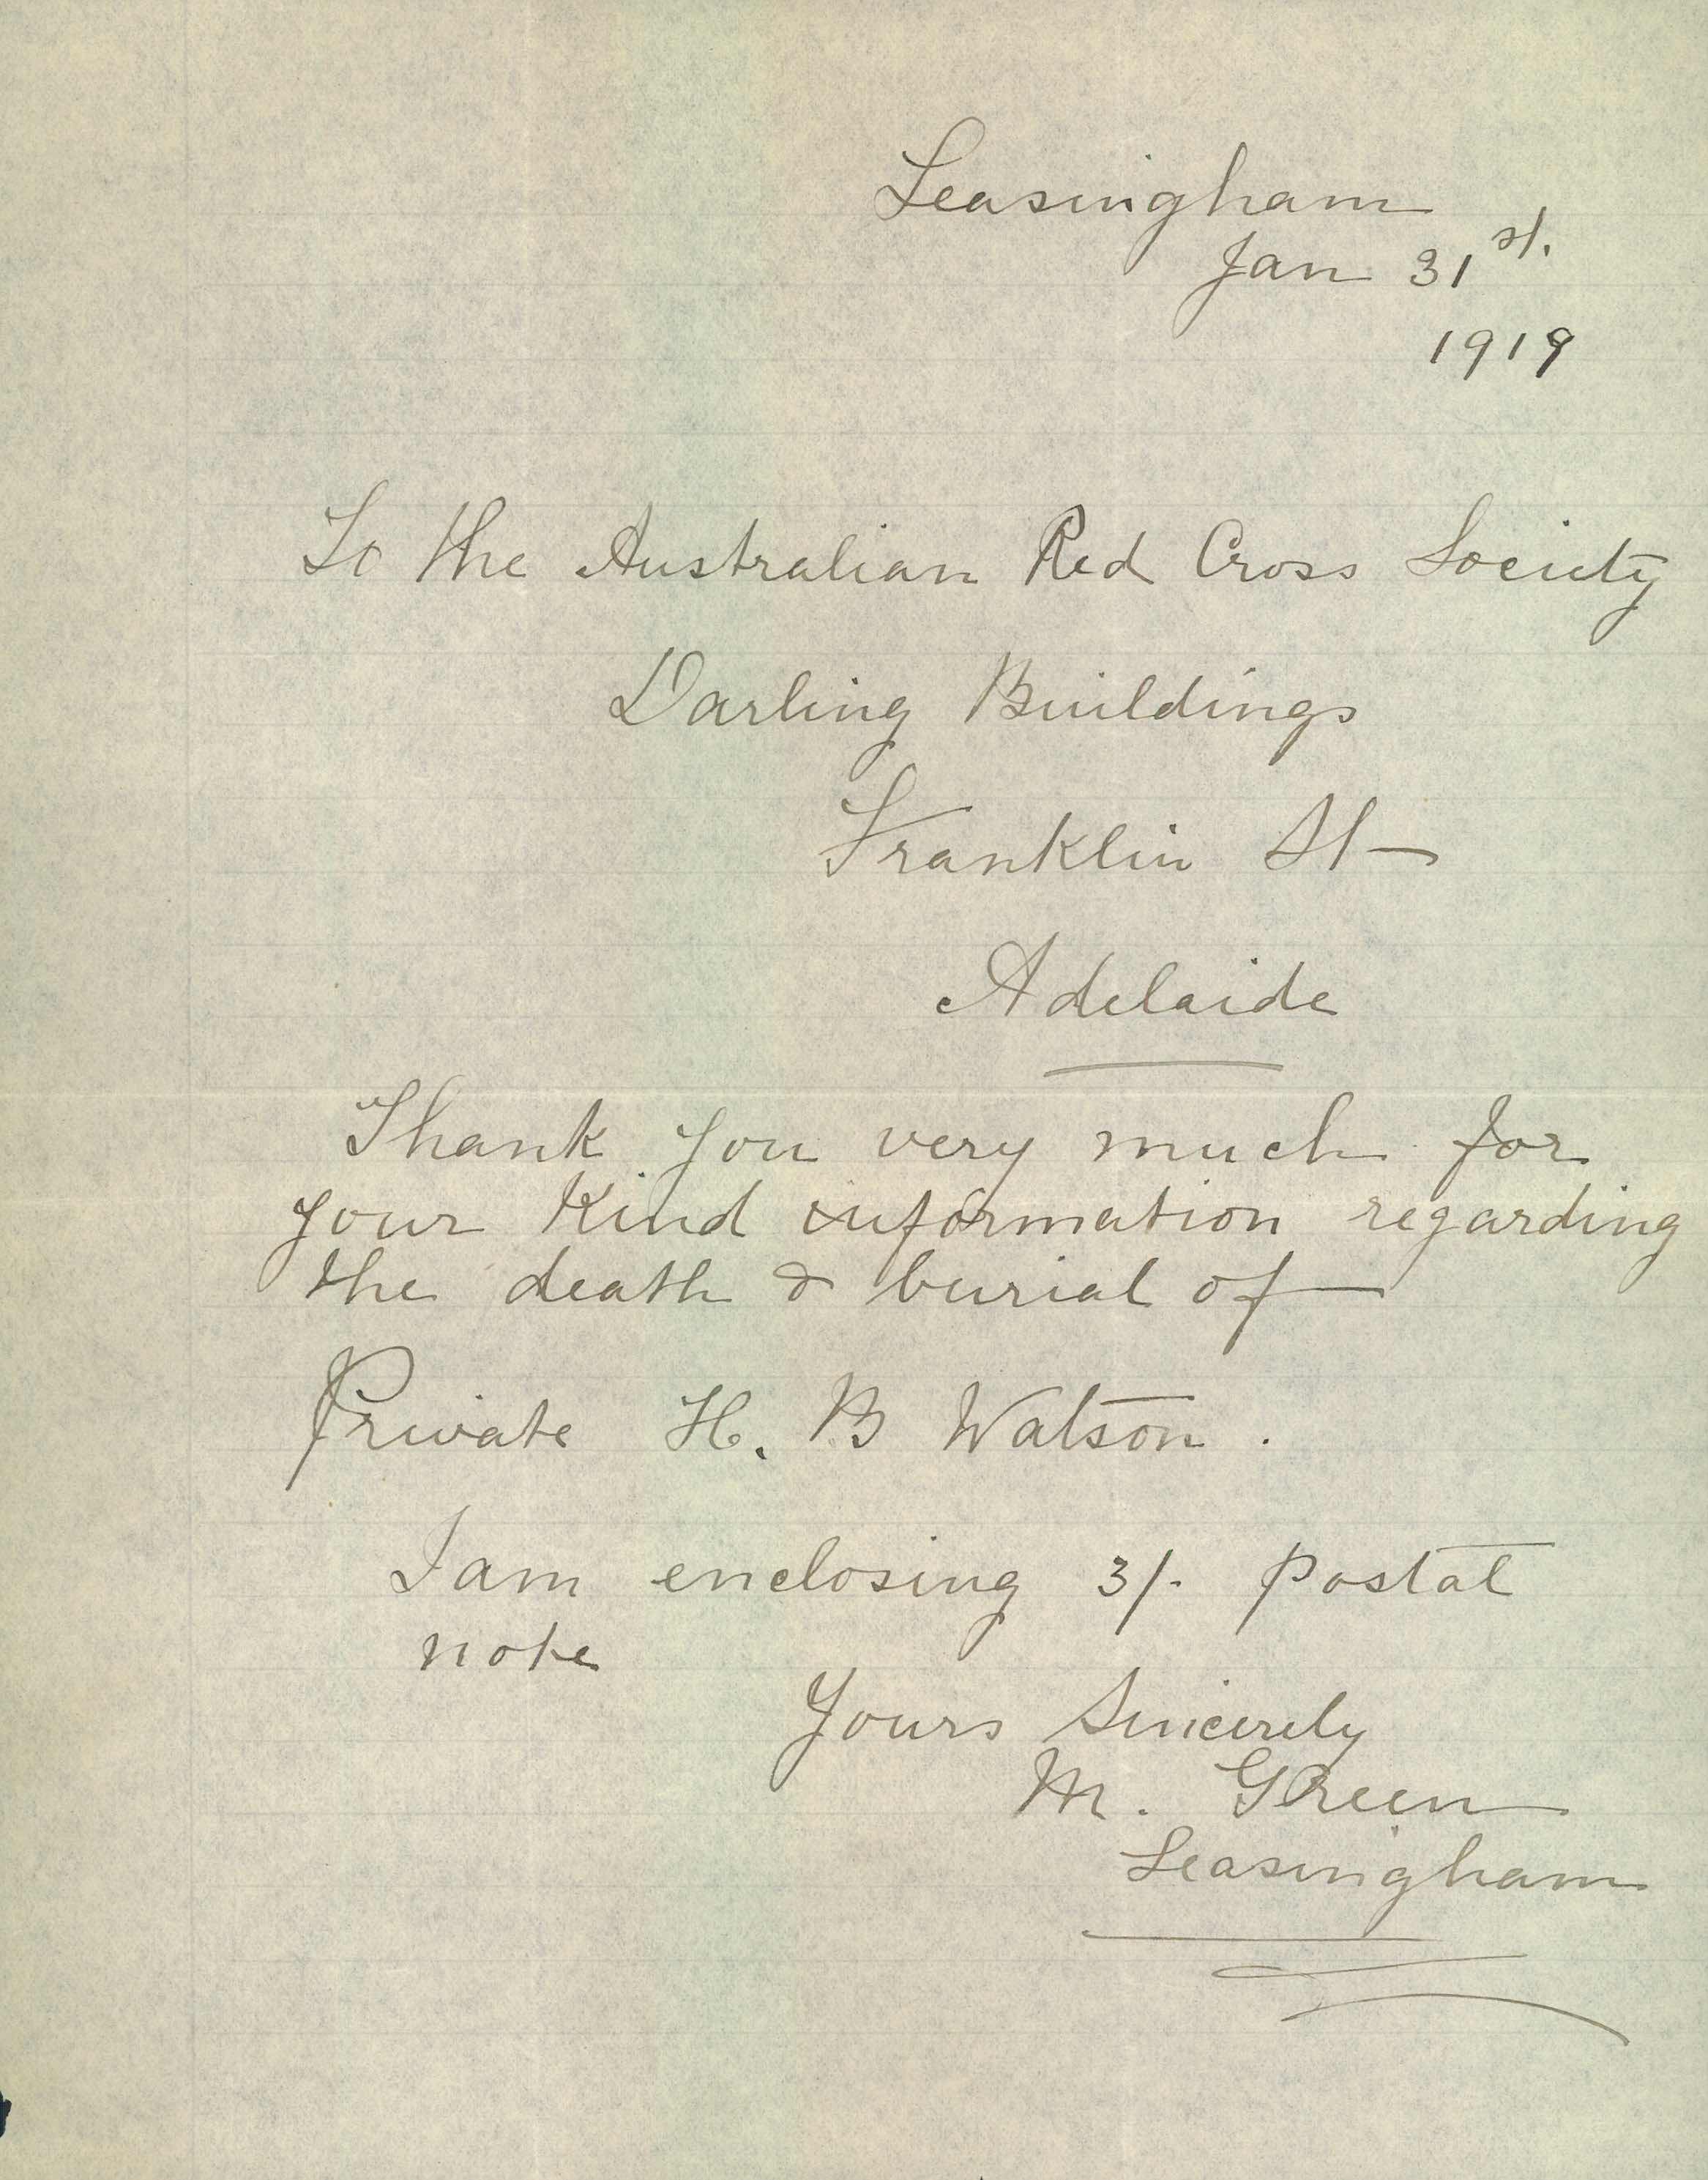 Leasingham
Jan 31st.
1919
To the Australian Red Cross Society
Darling Buildings
Franklin St
Adelaide
Thank you very much for
your Kind information regarding
the death & burial of
Private H. B Watson.
I am enclosing 3/- postal
note
Yours Sincerely
M. Green
Leasingham